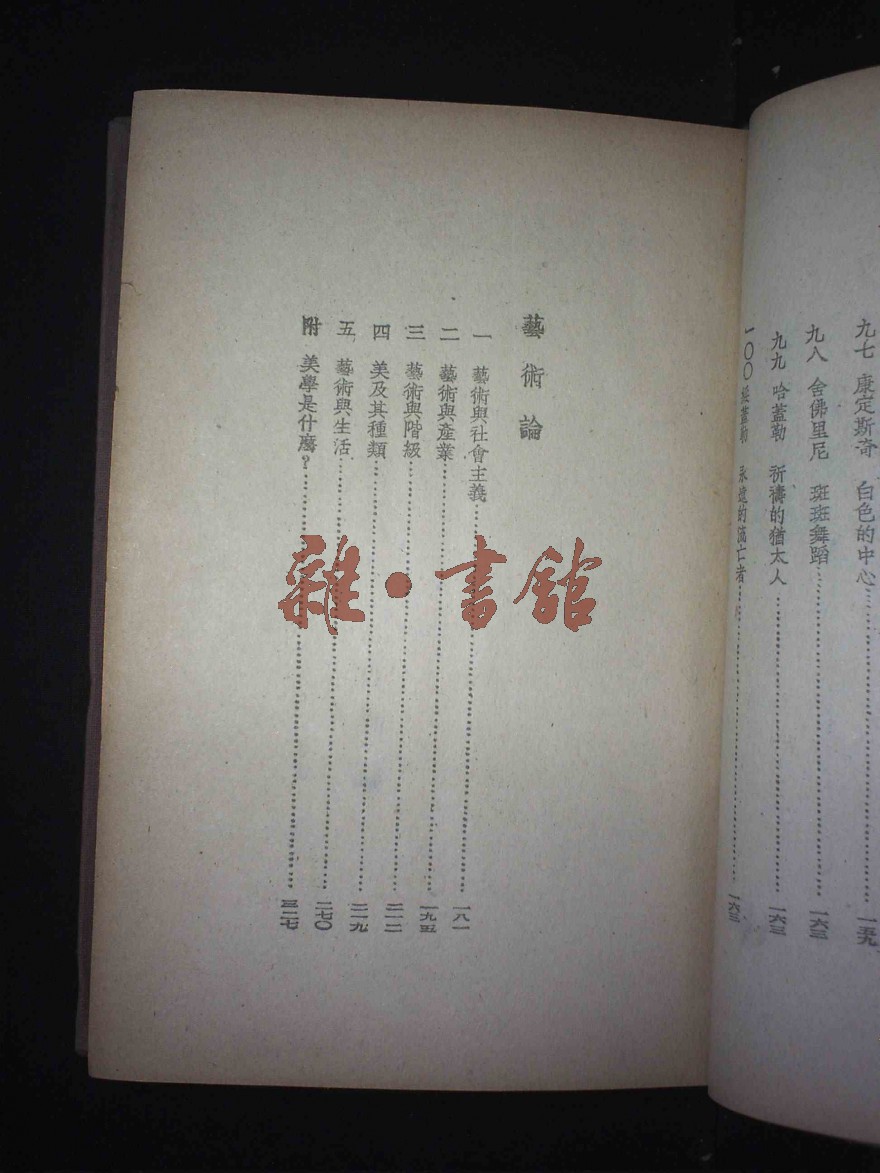 九七 康定斯奇 白色的中心 一五九
九八 舍佛里尼 斑斑舞蹈 一六三
九九 哈蓋勒 祈禱的猶太人 一六三
一〇〇 永遠的流亡者 一六三
藝術論
一 藝術與社會主義 一八一
二 藝術與產業 一九五
三 藝術與階級 二一二
四 美及其種類 二一九
五 藝術與生活 二七〇
附 美學是什麼? 三二七
雜·書館